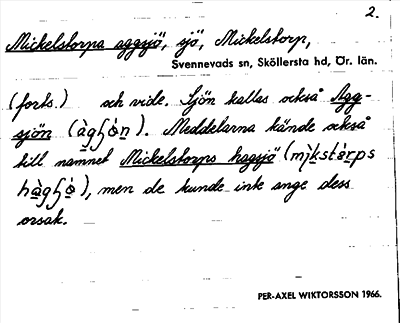 2.
Mickelstorpa aggsjö, sjö, Mickelstorp,
Svennevads sn, Sköllersta hd, Ör. län.
(forts.) och vide. Sjön kallas också Agg-
sjön (àgʃó̱n̥). Meddelarna kände också
till namnet Mickelstorps hagsjö (mìkstórps
hàgʃó̱), men de kunde inte ange dess
orsak.
PER-AXEL WIKTORSSON 1966.